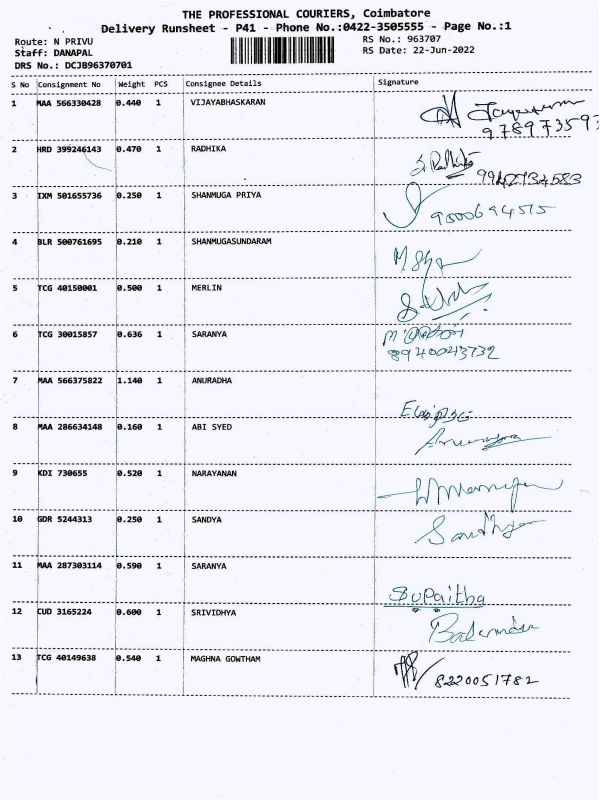 THE PROFESSIONAL COURIERS, Coimbatore
Delivery Runsheet - P41 - Phone No.:0422-3505555 - Page No.:1
Route: N PRIVU RS No.: 963707
Staff: DANAPAL RS Date: 22-Jun-2022
DRS No.: DCJB96370701
S No Consignment No Weight PCS Consignee Details Signature
1 MAA 566330428 0.440 1 VIJAYABHASKARAN
978973593
2 HRD 399246143 0.470 1 RADHIKA S. Radhika
9942734583
3 IXM 501655736 0.250 1 SHANMUGA PRIYA
9500694515
4 BLR 500761695 0.210 1 SHANMUGASUNDARAM
5 TCG 40150001 0.500 1 MERLIN
6 TCG 30015857 0.636 1 SARANYA
8940043732
7 MAA 566375822 1.140 1 ANURADHA
8 MAA 286634148 0.160 1 ABI SYED
9 KDI 730655 0.520 1 NARAYANAN
10 GDR 5244313 0.250 1 SANDYA Sandhya
11 MAA 287303114 0.590 1 SARANYA
Supaitha
12 CUD 3165224 0.600 1 SRIVIDHYA
13 TCG 40149638 0.540 1 MAGHNA GOWTHAM
8220051782